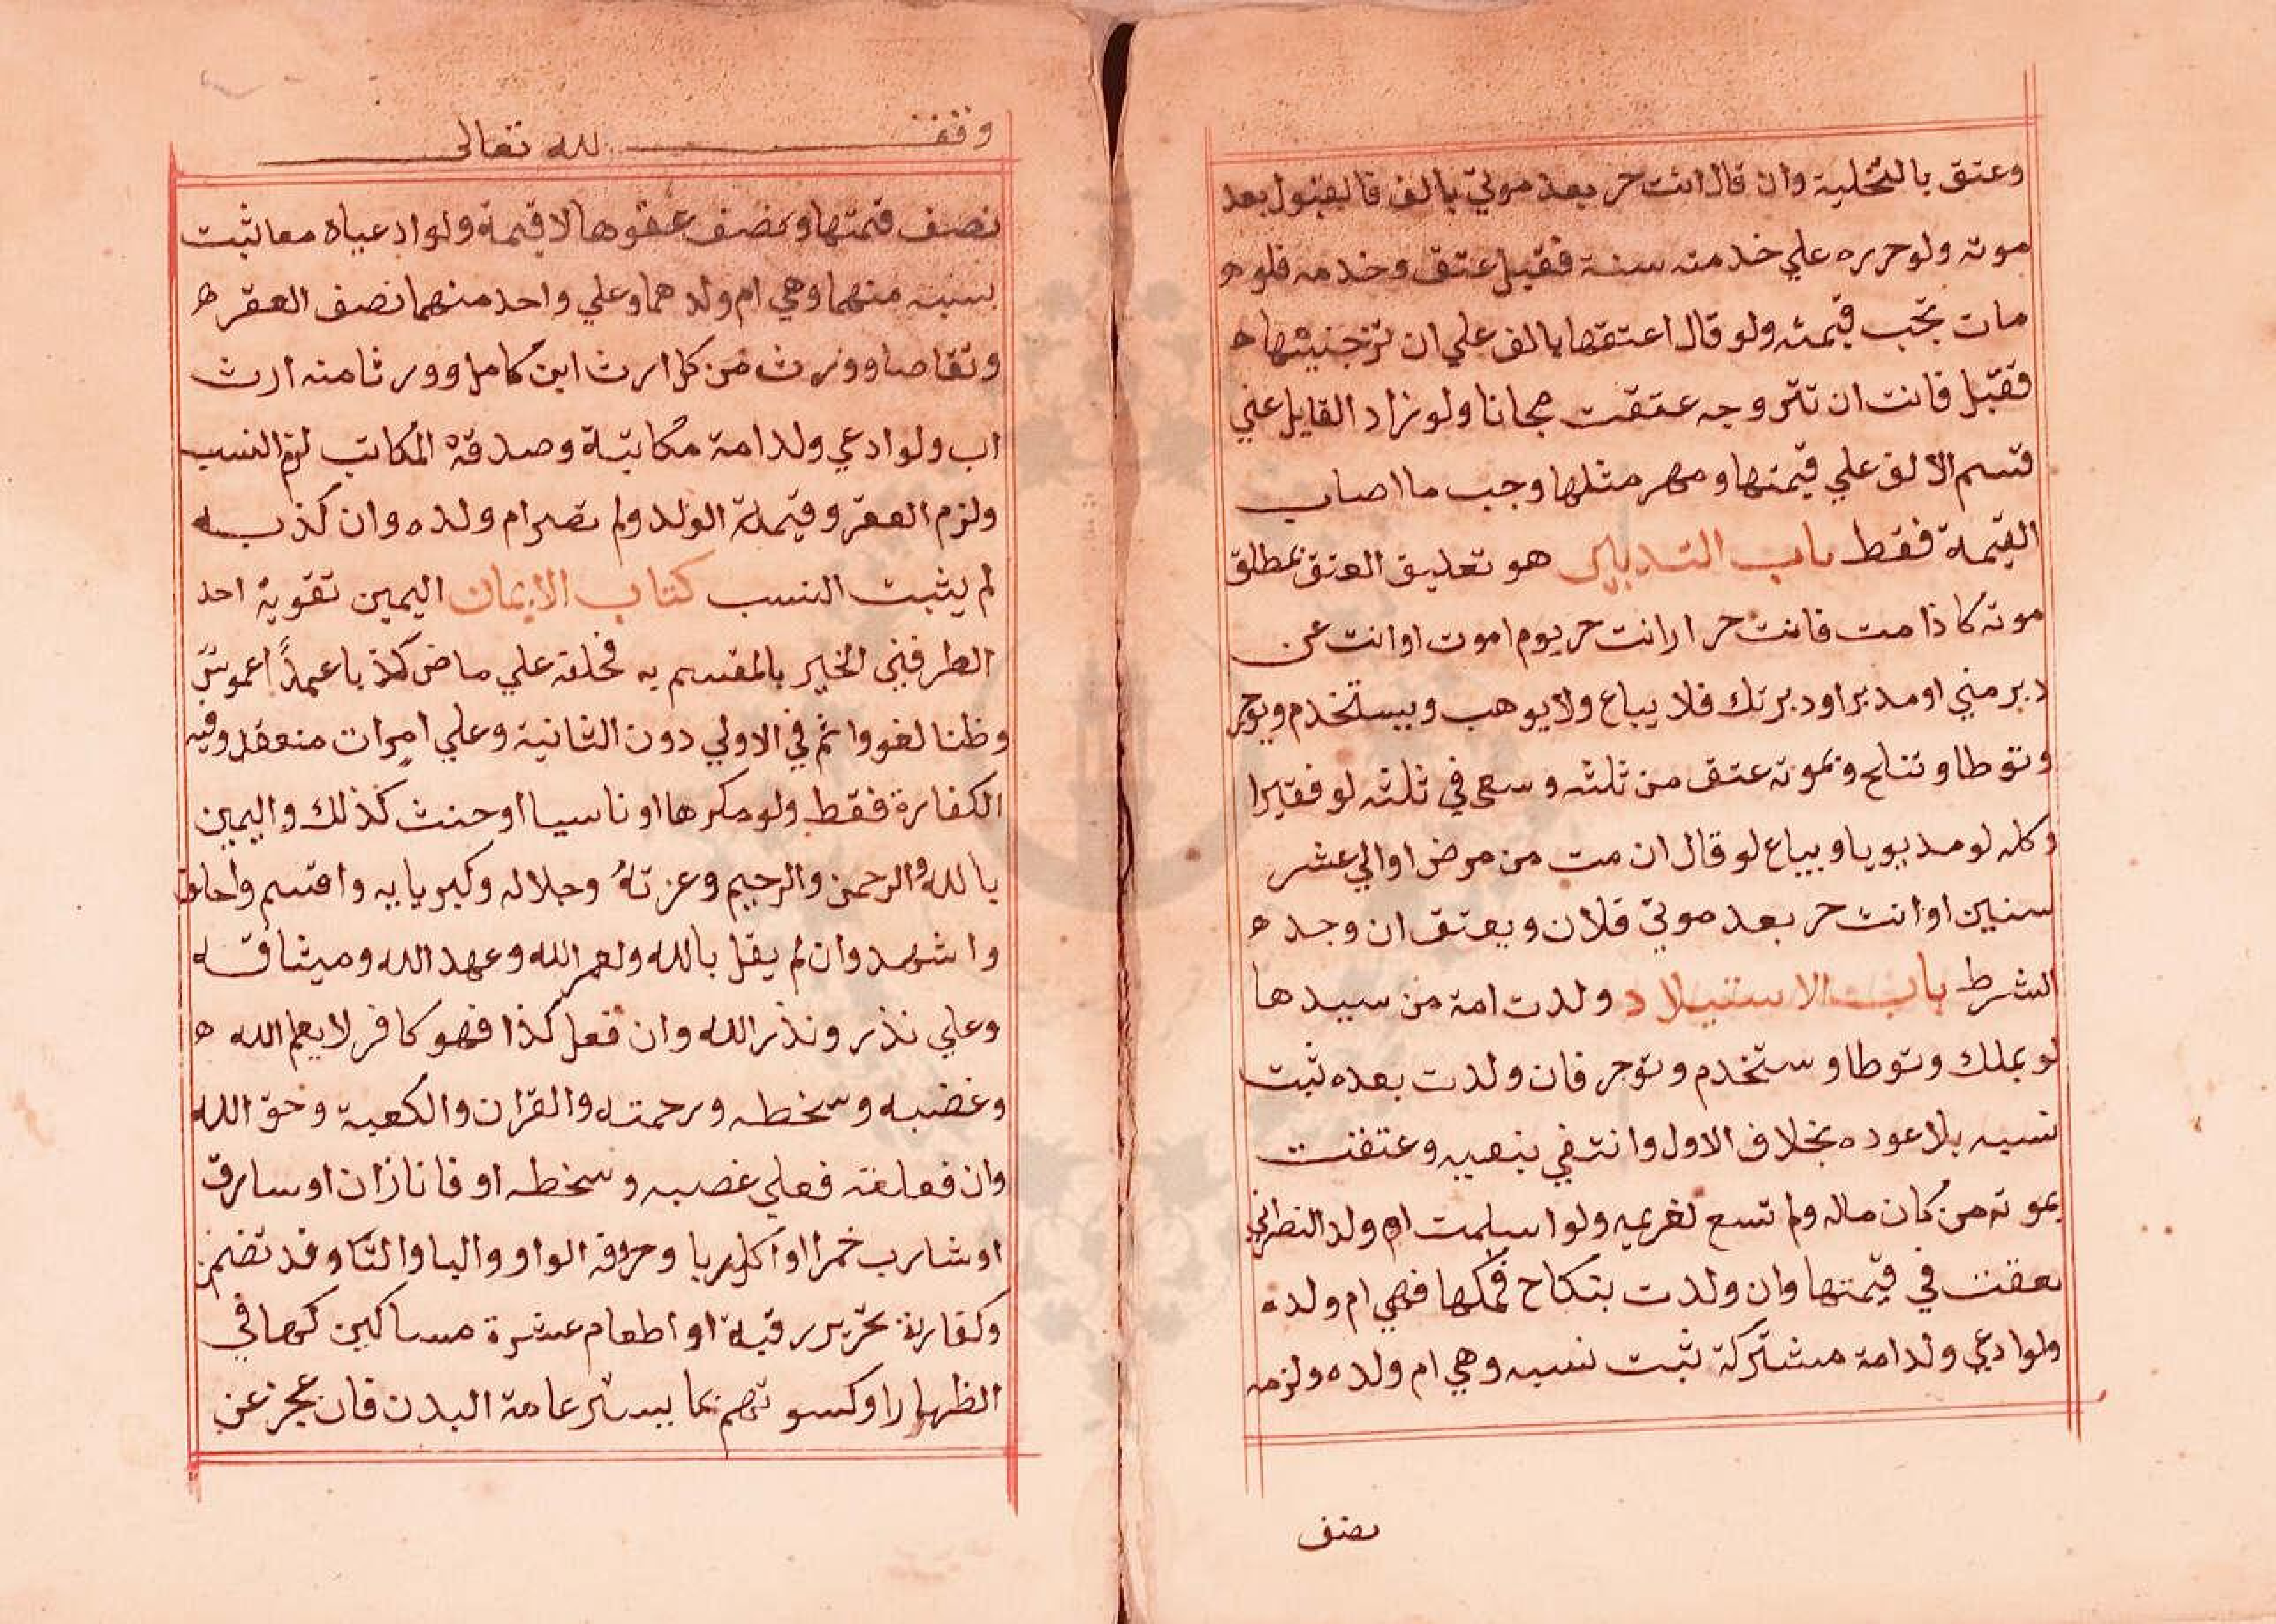 وعتق بالتخلية وان قال انت حر بعد موتي بالف فالقبول بعد
موته ولو حرره علي خدمته سنة فقبل عتق وخدمه فلو ه
مات تجب قيمته ولو قال اعتقها بالف علي ان تزجنيها ه
ففبل فانت ان تتزوجه عتقت مجانا ولو زاد القايل عني
قسم الالف علي قيمتها ومهر مثلها وجب ما اصاب
القيمة فقط باب التدبير هو تعليق العتق بمطلق
موته كاذا مت فانت حر ارانت حر يوم اموت او انت عن
دبر مني او مدبر او دبرتك فلا يباع ولا يوهب ويستخدم ويوجر
وتوطا وتنلح وبموته عتق من ثلثه وسعي في ثلثه لو فقيرا
وكله لو مديويا ويباع لو قال ان مت من مرض اوالي عشر
سنين او انت حر بعد موتي فلان ويعتق ان وجد ه
الشرط باب الاستيلاد ولدت امة من سيدها
لو يملك وتوطا وستخدم وتوجر فان ولدت بعده ثبت
نسبه بلا عوده بخلاف الاول وانتفي بنعيبه وعتفت
بموته من كان ماله ولم تسع لغريمه ولو اسلمت ام ولد النصراني
بعقت في قيمتها وان ولدت بتكاح فمكها فهي ام ولده
ولو ادعي ولد امة مشتركة ثبت نسبه وهي ام ولده ولزمه
نصف
وقف لله تعالى
نصف قمتها ونصف عقوها لا قيمة ولو ادعياه معا ثبت
نسبه منهما وهي ام ولدهما وعلي واحد منهما نصف العقر ه
وتقاصا وورث من كل ارث ابن كامل وورثا منه ارث
اب ولو ادعي ولد امة مكاتبة وصدقة المكاتب لزم النسب
ولزم العقر وقيمة الولد ولم تصر ام ولده وان كذبه
لم يثبت النسب كتاب الايمان اليمين تقوية احد
الطرفيني الخير بالمقسم به فحلفه علي ماض كذبا عمدا غموس
وظنا لغو واثم في الاولي دون الثانية وعلي امرات منعقد وفيه
الكفارة فقط ولو مكرها او ناسيا او حنث كذلك واليمين
بالله والرحمن والرحيم وعزته وجلاله وكبريايه واقسم واحلف
واشهد وان لم يقل بالله ولعمر الله وعهد الله وميثاقه
وعلي نذر ونذر الله وان فعل كذا فهو كافر لا يعلم الله ه
وغضبه وسخطه ورحمته والقران والكعبة وحق الله
وان فعلفه فعلي غصبه وسخطه او فانا زان او سارق
او شارب خمرا او اكل ربا وحروفه الواو والبا والتا وقد تضمن
وكفارته تحرير رقبة او اطعام عشرة مساكين كهما في
الظهار او كسوتهم بما يستر عامة البدن فان عجز عن